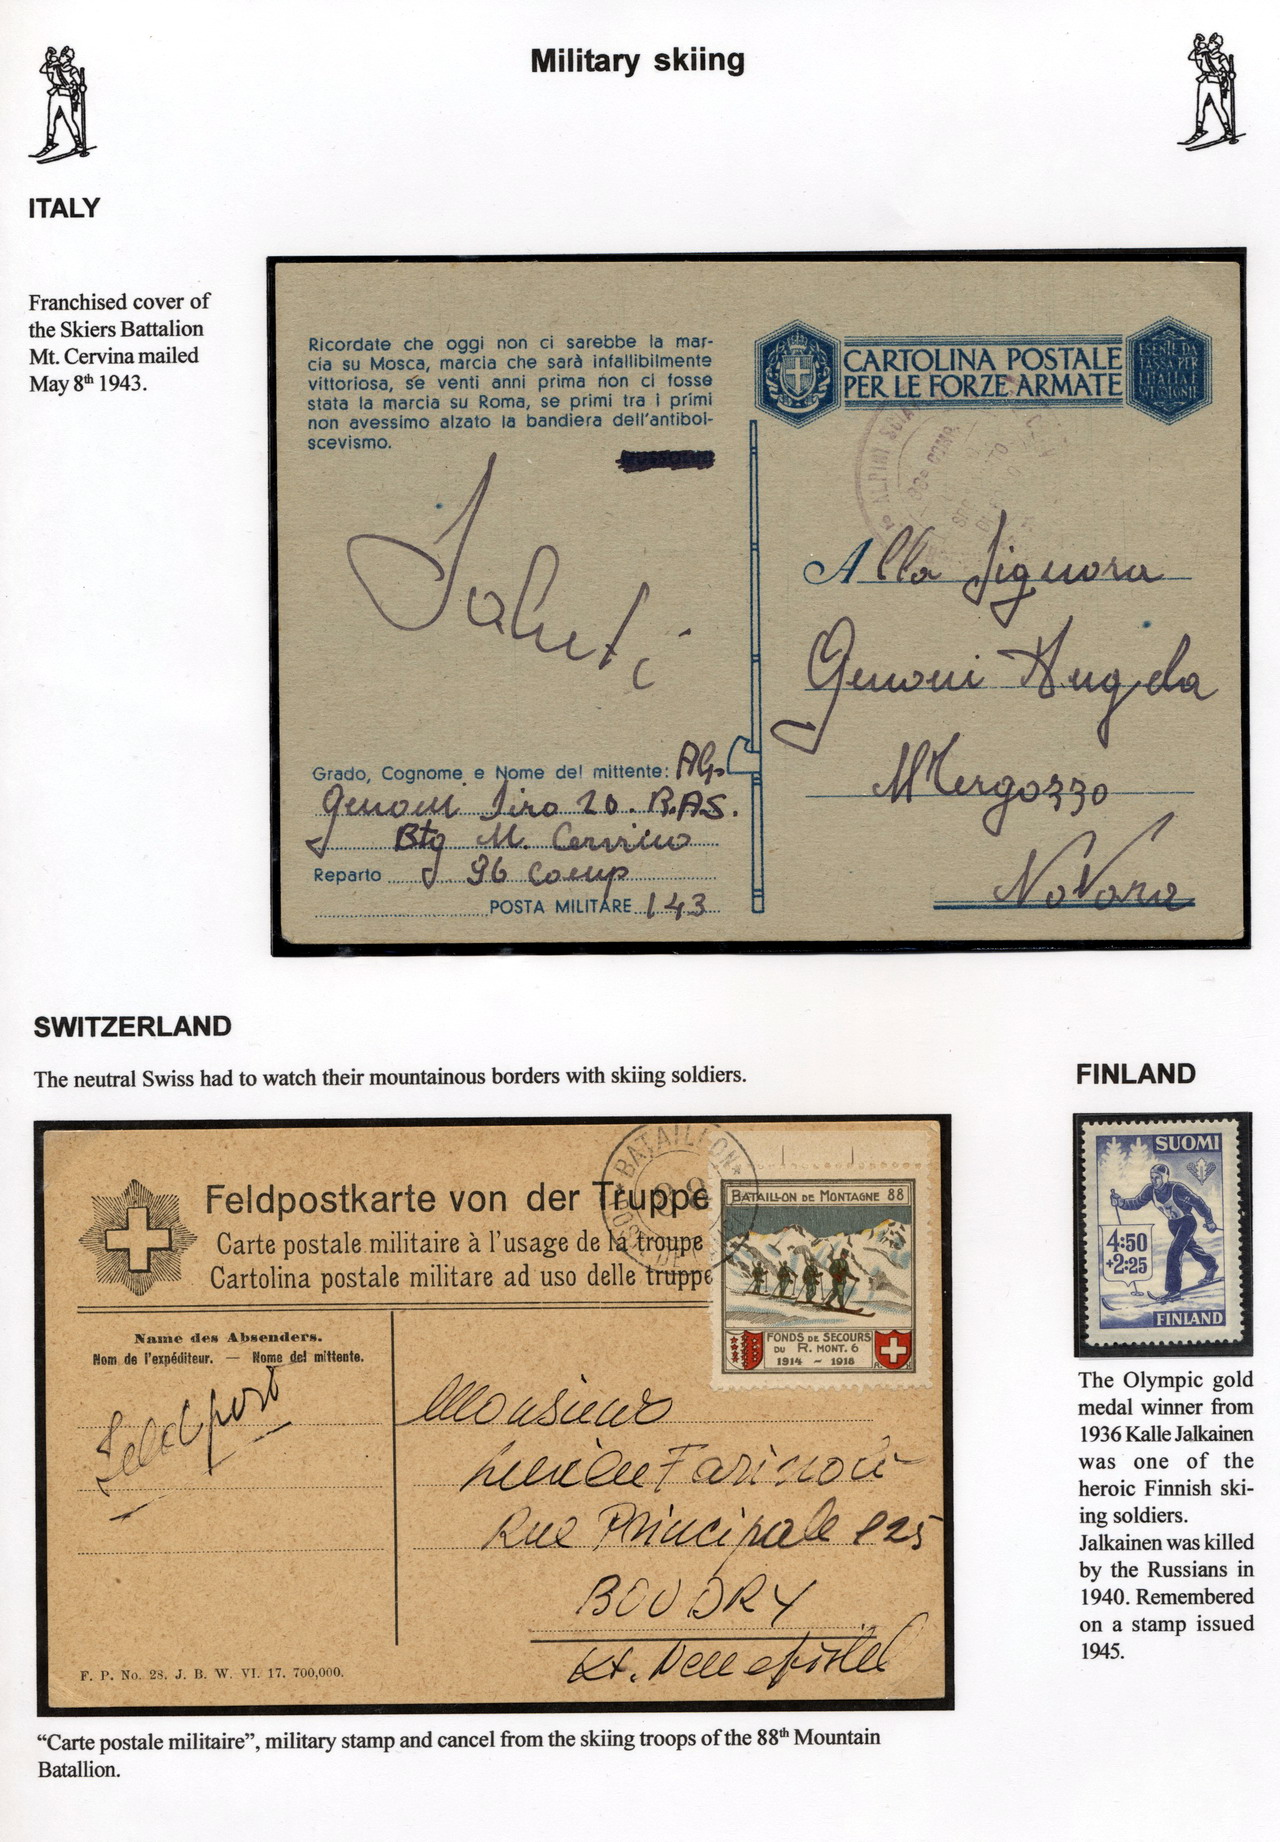 Military skiing
ITALY
Franchised cover of
the Skiers Battalion
Mt. Cervina mailed
May 8th 1943.
Ricordate che oggi non ci sarebbe la mar-
cia su Mosca, marcia che sarà infallibilmente
vittoriosa, se venti anni prima non ci fosse
stata la marcia su Roma, se primi tra i primi
non avessimo alzato la bandiera dell'antibol-
scevismo.
CARTOLINA POSTALE
PER LE FORZE ARMATE
ALPINI
Saluti
Alla Signora
Genoni Angela
Mergozzo
Novara
Grado, Cognome e Nome del mittente: Alp.
Genoni Siro 20. R.A.S.
Btg M. Cervino
Reparto 96 Comp
POSTA MILITARE 143
SWITZERLAND
The neutral Swiss had to watch their mountainous borders with skiing soldiers.
BATAILLON
88
Feldpostkarte von der Truppe
Carte postale militaire à l'usage de la troupe
Cartolina postale militare ad uso delle truppe
BATAILLON DE MONTAGNE 88
FONDS DE SECOURS
DU R. MONT. 6
1914 - 1918
Name des Absenders.
Nom de l'expéditeur. — Nome del mittente.
Feldpost
Monsieur
Rue Principale 125
BOUDRY
Kt. Neuchâtel
F. P. No. 28. J. B. W. VI. 17. 700,000.
"Carte postale militaire", military stamp and cancel from the skiing troops of the 88th Mountain
Batallion.
FINLAND
SUOMI
4:50
+2:25
FINLAND
The Olympic gold
medal winner from
1936 Kalle Jalkainen
was one of the
heroic Finnish ski-
ing soldiers.
Jalkainen was killed
by the Russians in
1940. Remembered
on a stamp issued
1945.